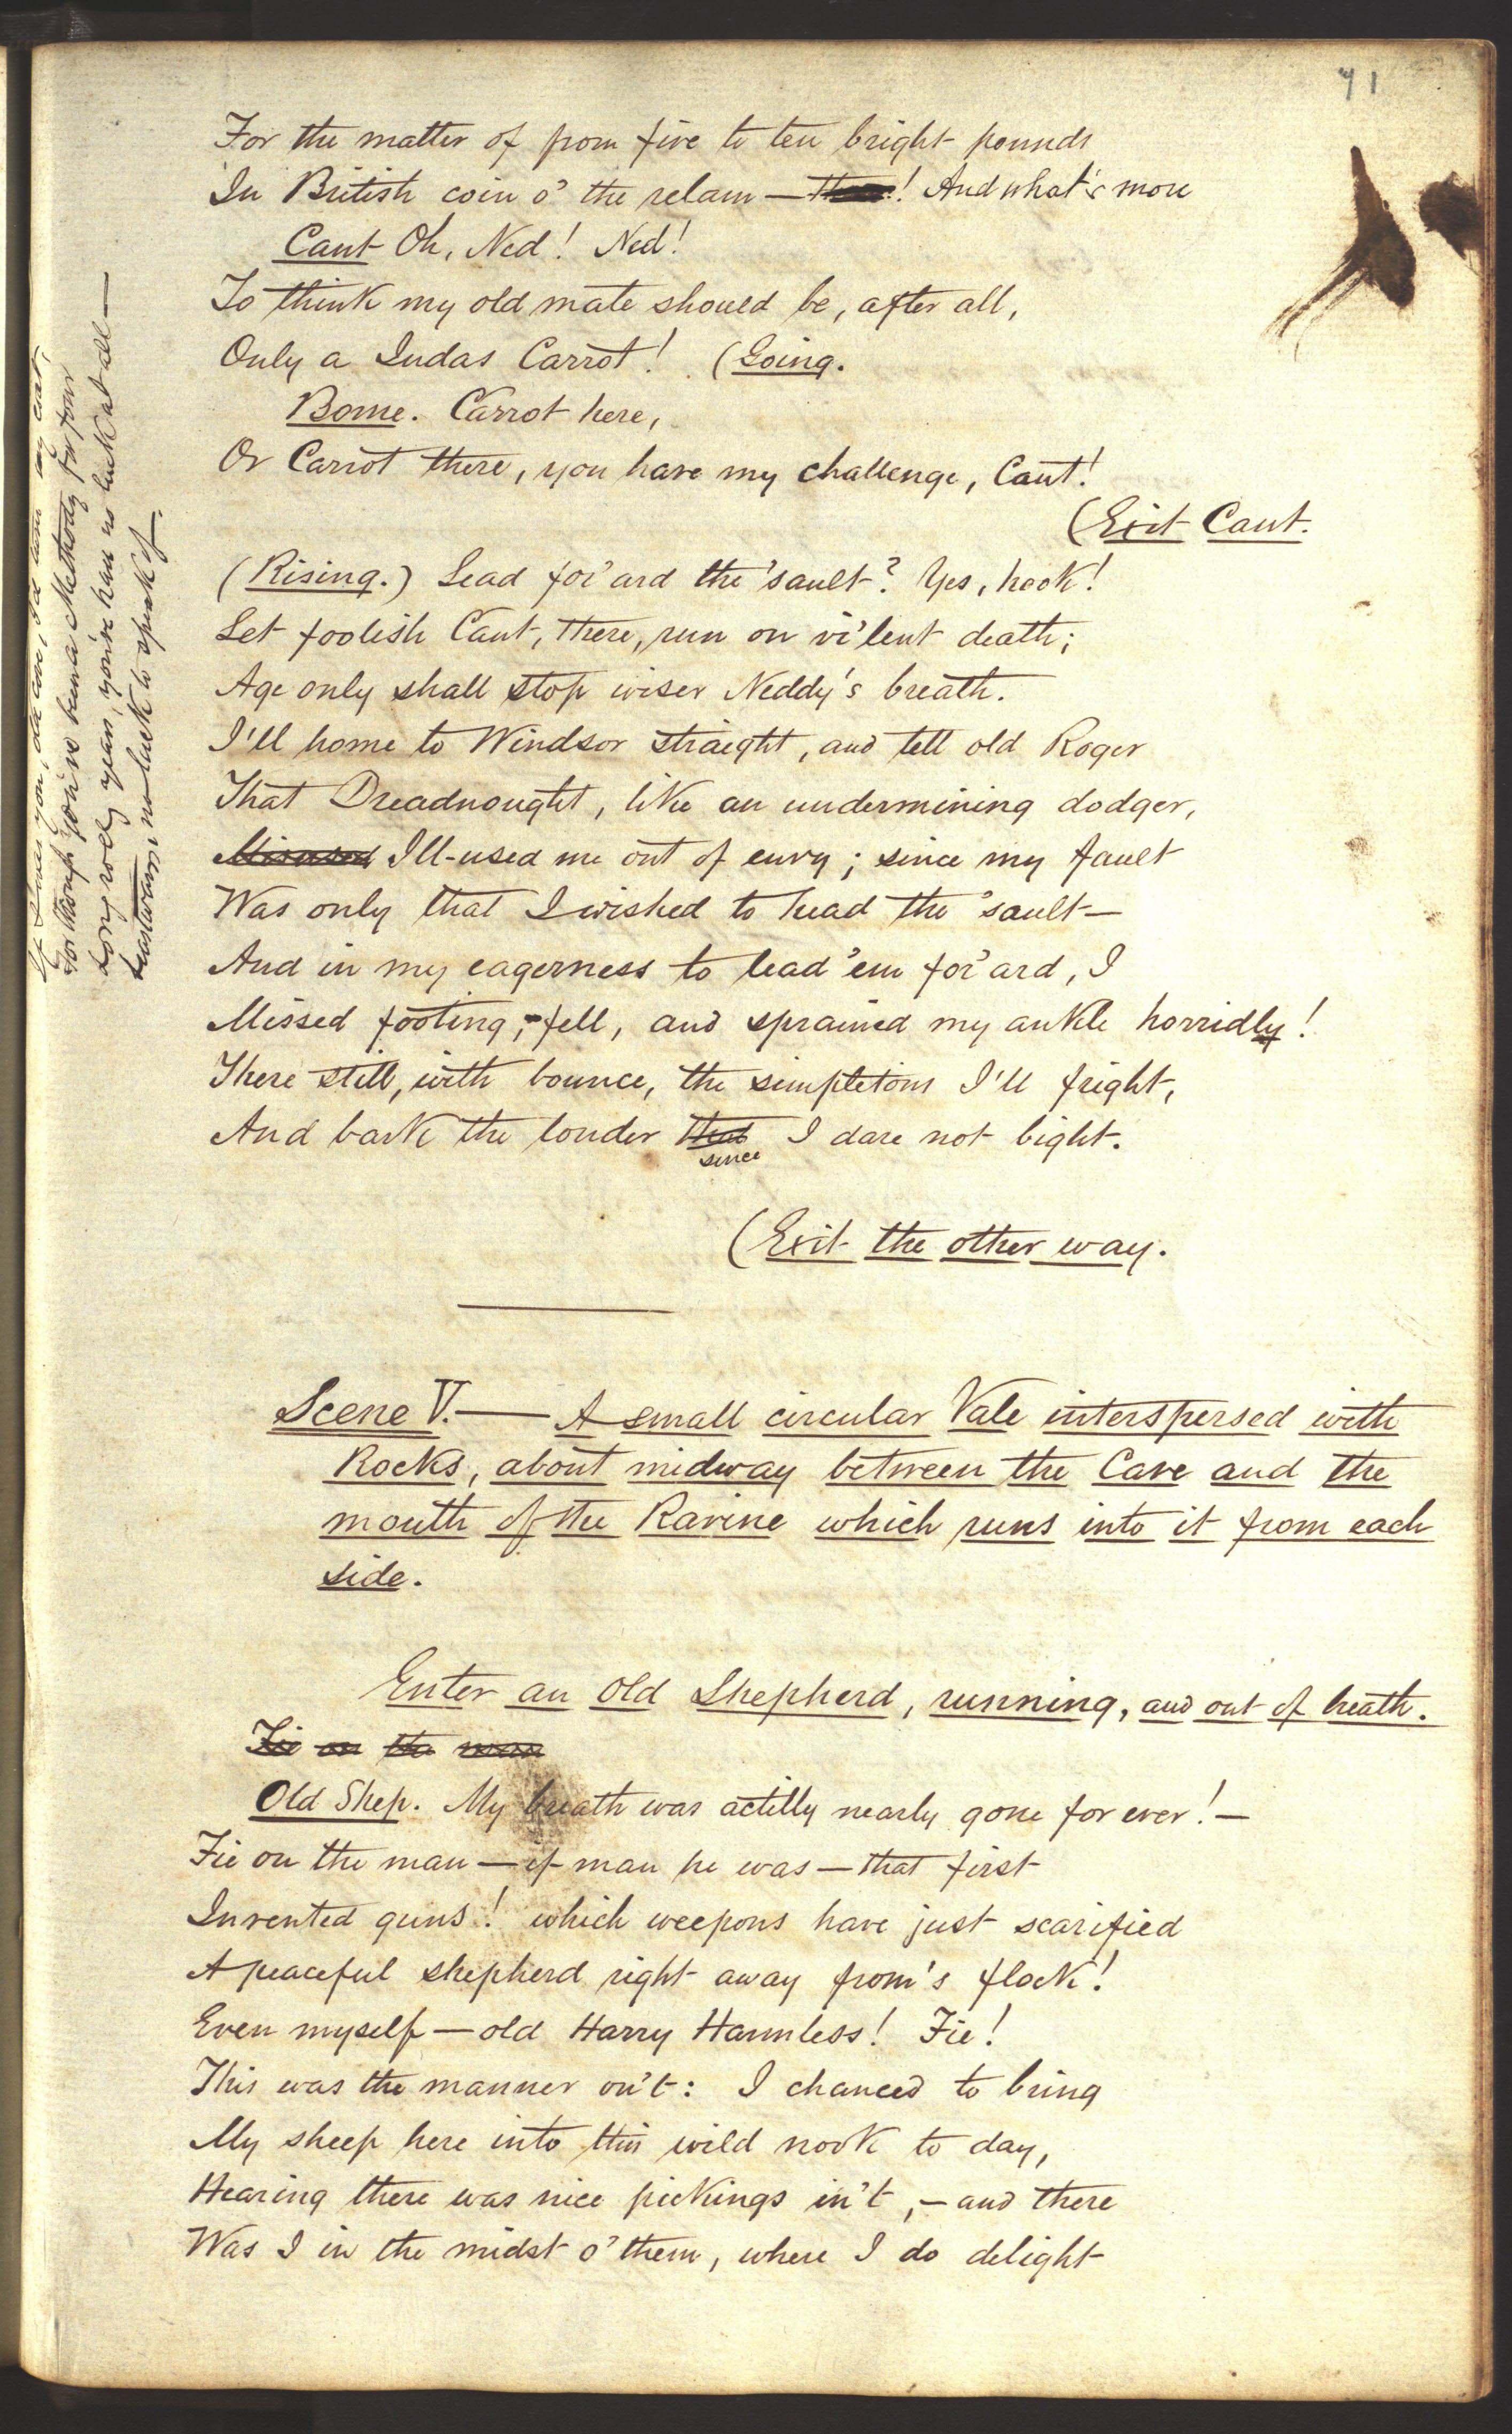 71
For the matter of from five to ten bright pounds
In British coin o' the relam — ! And what's more
Cant Oh, Ned! Ned!
To think my old mate should be, after all,
Only a Judas Carrot! (Going.
Bome. Carrot here,
Or Carrot there, you have my challenge, Cant!
(Exit Cant.
(Rising.) Lead for'ard the 'sault? Yes, hook!
Let foolish Cant, there, run on vi'lent death;
Age only shall stop wiser Neddy's breath.
I'll home to Windsor straight, and tell old Roger
That Dreadnought, like an undermining dodger,
Misused Ill-used me out of envy; since my fault
Was only that I wished to head the 'sault—
And in my eagerness to lead 'em for'ard, I
Missed footing,—fell, and sprained my ankle horridly!
There still, with bounce, the simpletons I'll fright,
And bark the louder that I dare not bight.
since
(Exit the other way.
Scene V.— A small circular Vale interspersed with
Rocks, about midway between the Cave and the
mouth of the Ravine which runs into it from each
side.
Enter an old Shepherd, running, and out of breath.
Fie on the man
Old Shep. My breath was actilly nearly gone for ever!—
Fie on the man—if man he was—that first
Invented guns! which weepons have just scarified
A peaceful shepherd right away from's flock!
Even myself—old Harry Harmless! Fie!
This was the manner on't: I chanced to bring
My sheep here into this wild nook to day,
Hearing there was nice pickings in't,—and there
Was I in the midst o' them, where I do delight
If I was you, d'ee see, I'd turn my coat,
For though you've been a Methody for four
long rody years, you've had no luck at all—
leastways, no luck to speak of.